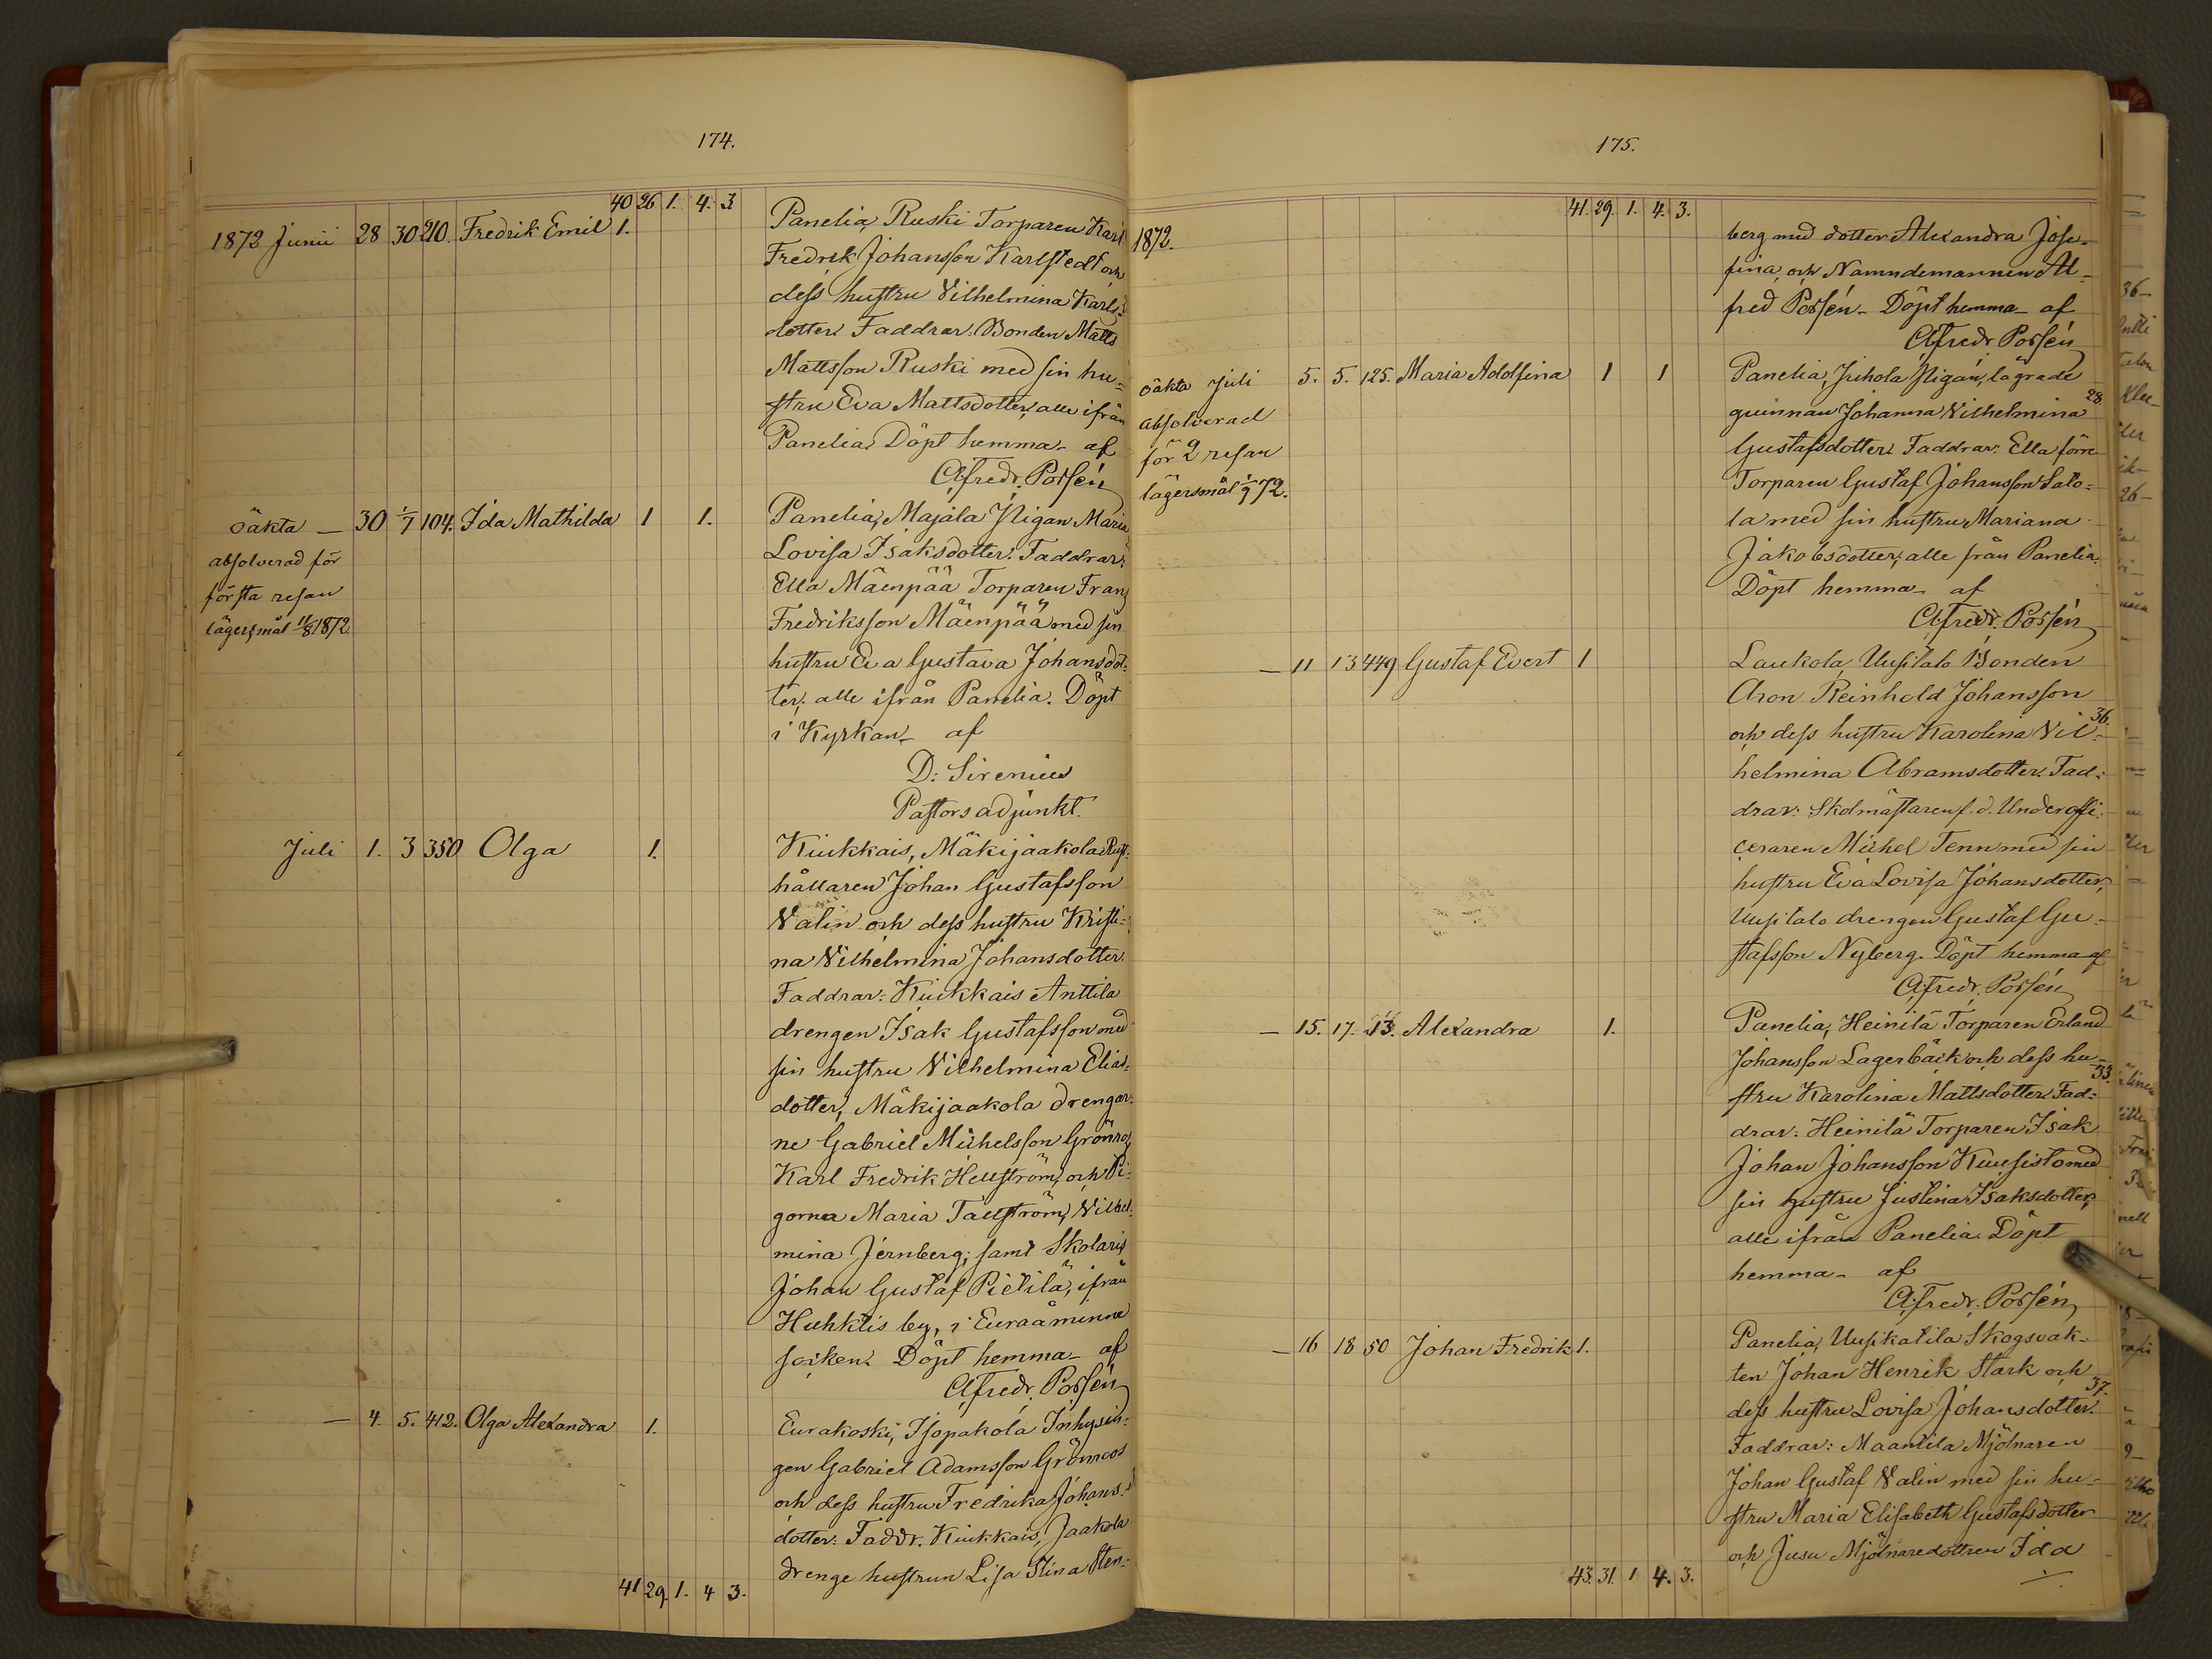 174.
40 26 1. 4. 3
1872 Junii 28 30 210. Fredrik Emil 1. Panelia, Ruski Torparen Karl
Fredrik Johansson Karlstedt och
dess hustru Vilhelmina Karls-
dotter. Faddrar: Bonden Matts
Mattsson Ruski med sin hu-
stru Eva Mattsdotter, alle ifrån
Panelia. Döpt hemma - af
Afredr. Porsén
oäkta — 30 1/7 104. Ida Mathilda 1 1. Panelia, Majala Pigan Maria
absolverad för Lovisa Isaksdotter. Faddrar:
första resan Ella Mäenpää Torparen Frans
lägersmål 11/8 1872 Fredriksson Mäenpää med sin
hustru Eva Gustava Johansdot-
ter; alle ifrån Panelia. Döpt
i Kyrkan - af
D: Sirenius
Pastorsadjunkt.
Juli 1. 3 350 Olga 1. Kiukkais, Mäkijaakola Rust-
hållaren Johan Gustafsson
Valin och dess hustru Kristi-
na Vilhelmina Johansdotter.
Faddrar: Kiukkais Anttila
drengen Isak Gustafsson med
sin hustru Vilhelmina Elias-
dotter, Mäkijaakola drengar-
ne Gabriel Michelsson Grönroos
Karl Fredrik Hellström, och Pi-
gorna Maria Tallström, Vilhel-
mina Jernberg; samt Skolaris
Johan Gustaf Pietilä, ifrån
Huhktis by, i Euraåminne
socken. Döpt hemma - af
Afredr. Porsén
— 4. 5. 412. Olga Alexandra 1. Eurakoski, Isopakola Inhysin-
gen Gabriel Adamsson Grönroos
och dess hustru Fredrika Johans-
dotter: Faddr. Kiukkais, Jaakola
drenge hustrun Lisa Stina Sten-
41 29. 1. 4 3.
175.
41. 29. 1. 4. 3.
1872. berg med dotter Alexandra Jose-
fina, och Namndemannen Al-
fred Porsén - Döpt hemma - af
Afredr. Porsén
oäkta Juli 5. 5. 125. Maria Adolfina 1 1 Panelia, Juhola Pigan, lägrade
28.
absolverad quinnan Johanna Vilhelmina
för 2 resan Gustafsdotter. Faddrar: Ella förre
lägersmål 1/9 72. Torparen Gustaf Johansson Salo-
la med sin hustru Mariana
Jakobsdotter; alle från Panelia.
Döpt hemma - af
Afredr. Porsén
— 11 13 449 Gustaf Evert 1 Laukola, Uusitalo Bonden
Aron Reinhold Johansson
36.
och dess hustru Karolina Vil-
helmina Abramsdotter. Fad-
drar: Skolmästaren f.d. Underoffi-
ceraren Michel Tenn med sin
hustru Eva Lovisa Johansdotter,
Uusitalo drengen Gustaf Gu-
stafsson Nyberg. Döpt hemma af
Afredr. Porsén
— 15. 17. 13. Alexandra 1. Panelia, Heinilä Torparen Erland
Johansson Lagerbäck och dess hu-
33.
stru Karolina Mattsdotter. Fad-
drar: Heinilä Torparen Isak
Johan Johansson Kuusisto med
sin hustru Justina Isaksdotter,
alle ifrån Panelia. Döpt
hemma - af
Afredr. Porsén
— 16 18 50 Johan Fredrik 1. Panelia, Uusikatila Skogsvak-
ten Johan Henrik Stark och
37.
dess hustru Lovisa Johansdotter.
Faddrar: Maantila Mjölnaren
Johan Gustaf Valin med sin hu-
stru Maria Elisabeth Gustafsdotter
och Jusu Mjölnaredottren Ida
43. 31. 1 4. 3.